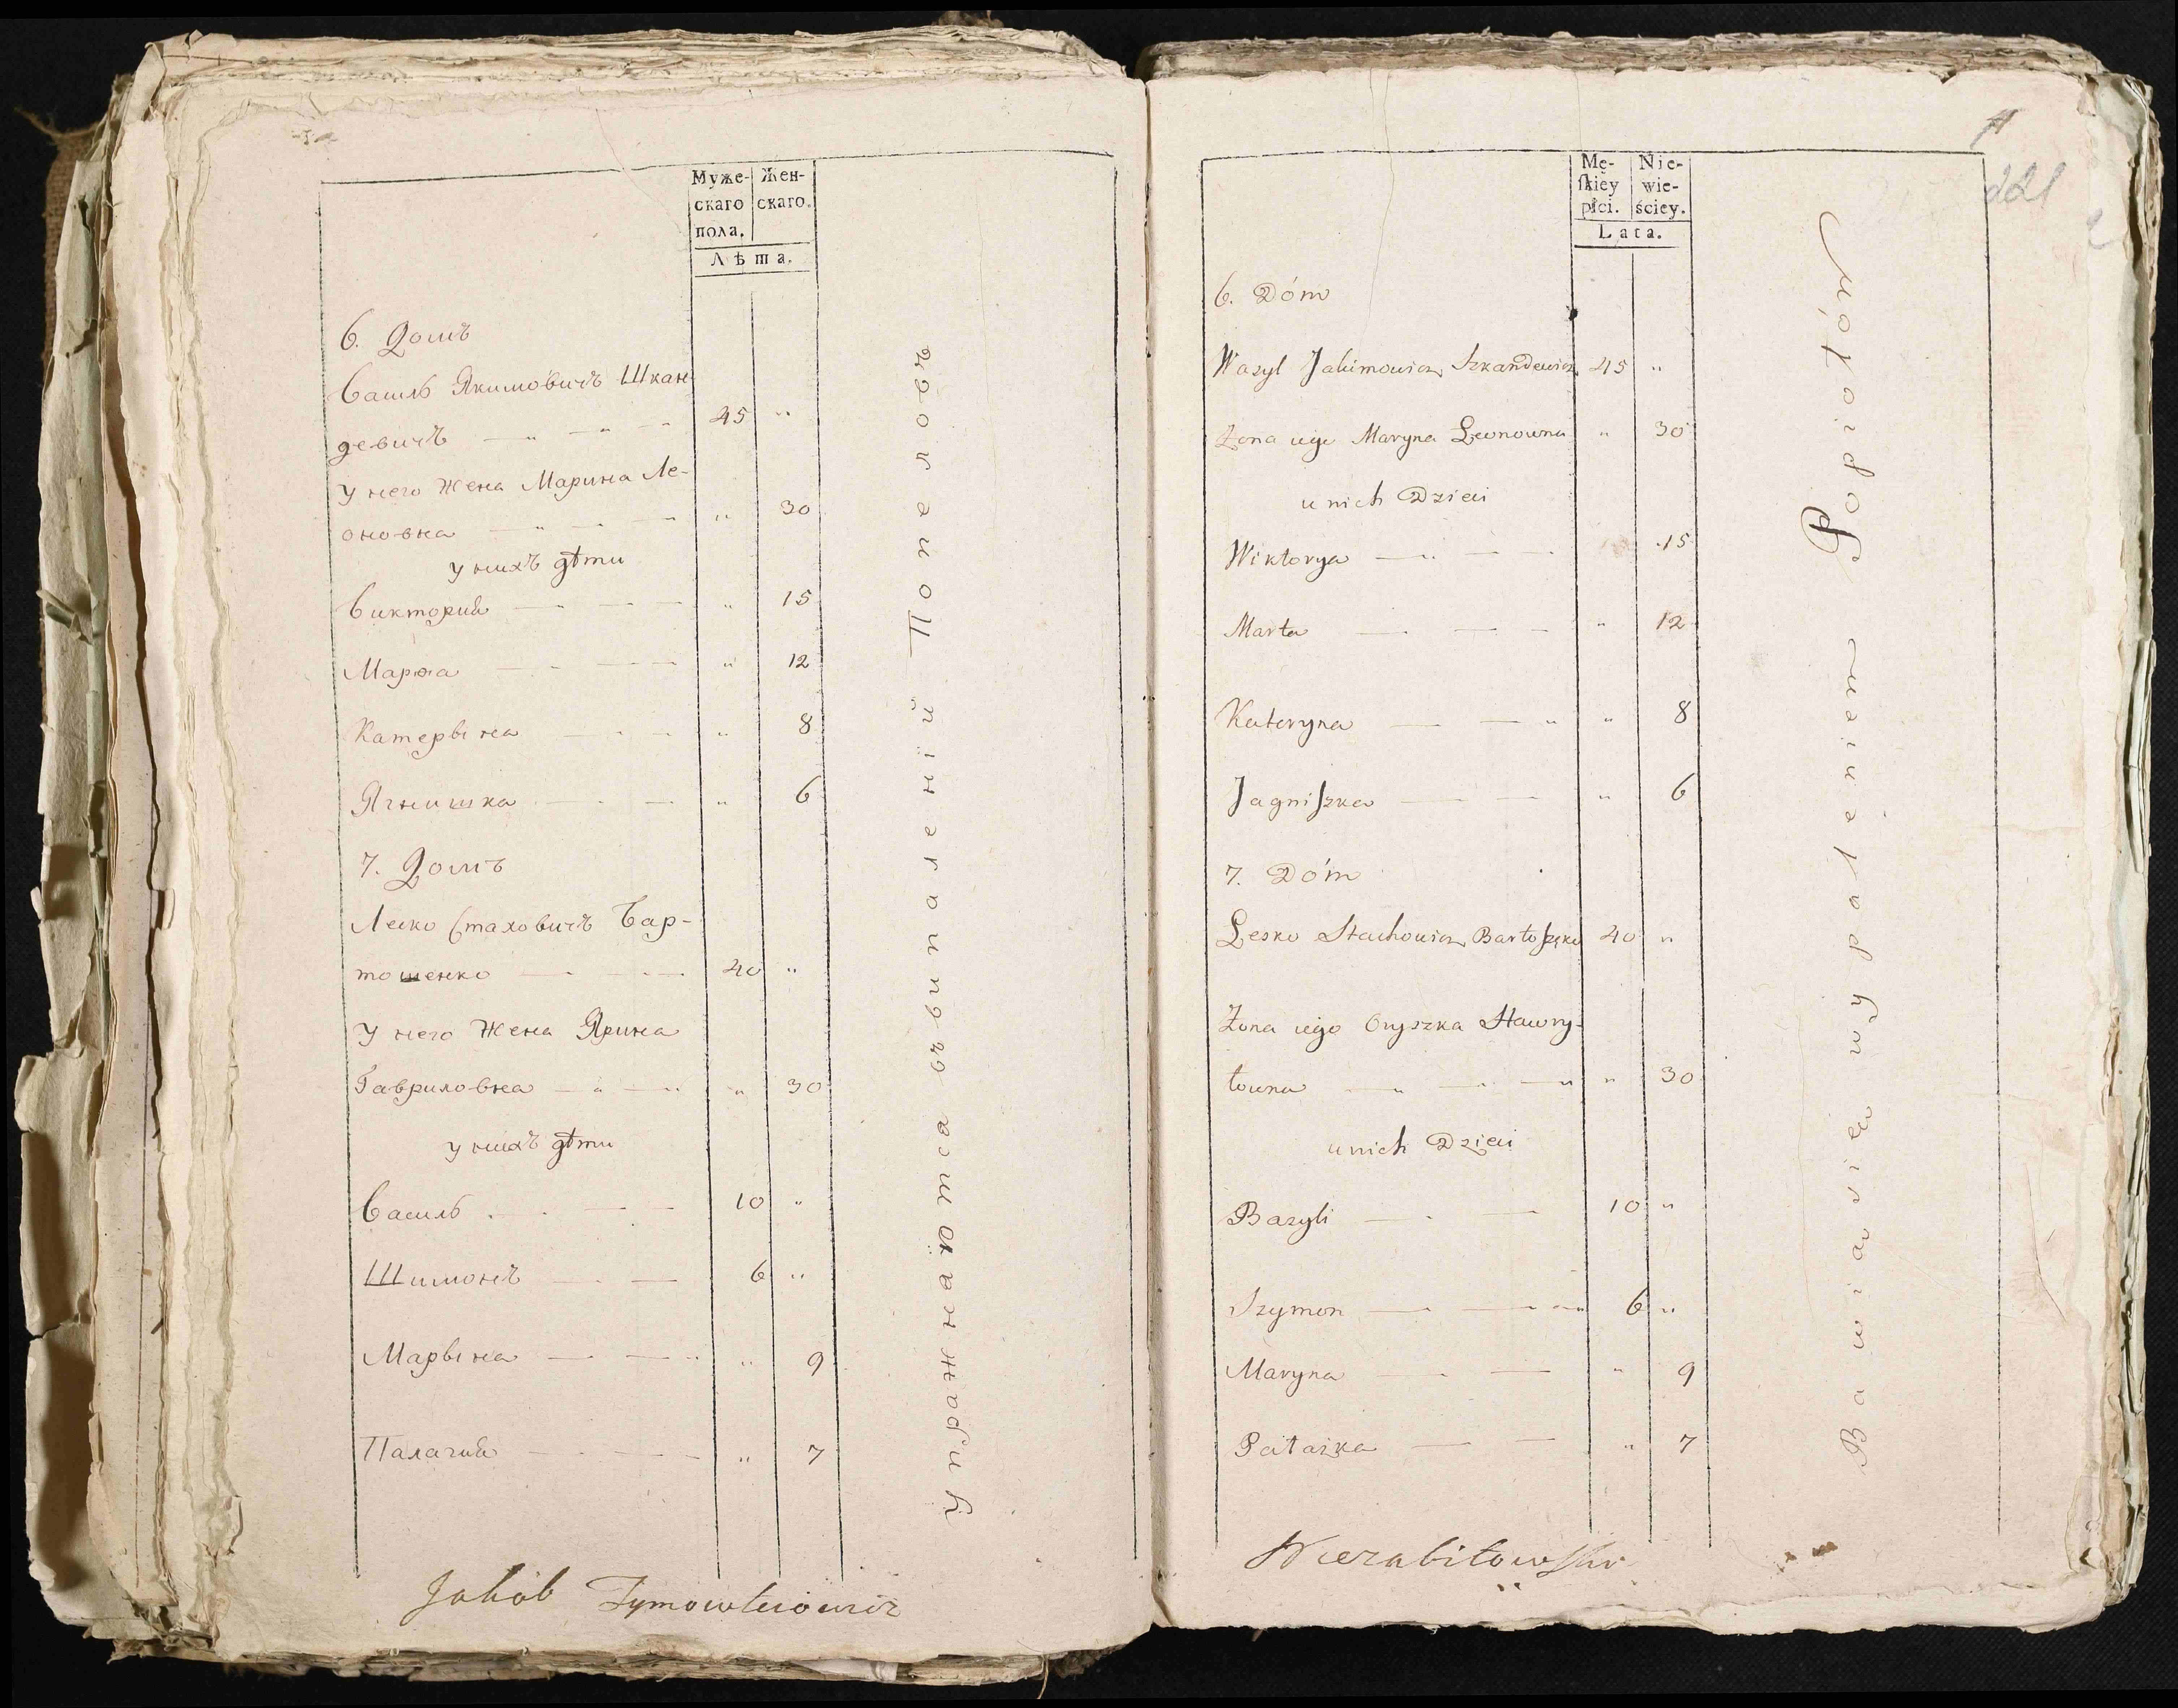 Муже-
скаго
пола.
Жен-
скаго.
Лѣта.
6. Домъ
Василь Якимовичъ Шкан-
девичъ — „ — „ — 45 „
У него Жена Марина Ле-
оновна — „ — „ 30
у нихъ дѣти
Викторий — „ — „ 15
Марѳа — — „ 12
Катерына — — „ 8
Ягнишка — — „ 6
7. Домъ
Леско Стаховичъ Бар-
тошенко — — 40 „
У него Жена Ярина
Гавриловна — „ — „ „ 30
у нихъ дѣти
Василь — — 10 „
Шимонъ — — 6 „
Марына — — „ 9
Палагий — — „ 7
Упражнаютса въвипаленiй Попеловъ
Jakób
Mę-
ſkiey
płci.
Nie-
wie-
ściey.
Lata.
221
6. Dóm
Wasyl Jakimowicz Szkandewicz 45 „
Żona iego Maryna Leonowna „ 30
u nich Dzieci
Wiktorya — „ — 15
Marta — — „ 12
Kateryna — — „ „ 8
Jagniſzka — — „ 6
7. Dóm
Lesko Stachowicz Bartoſzęko 40 „
Żona iego Oryszka Hawry-
łowna — „ — „ „ 30
u nich Dzieci
Bazyli — — 10 „
Szymon — — „ 6 „
Maryna — — „ 9
Pałaszka — — „ 7
Bawią się wypaleniem Popiołów
Niezabitowſki